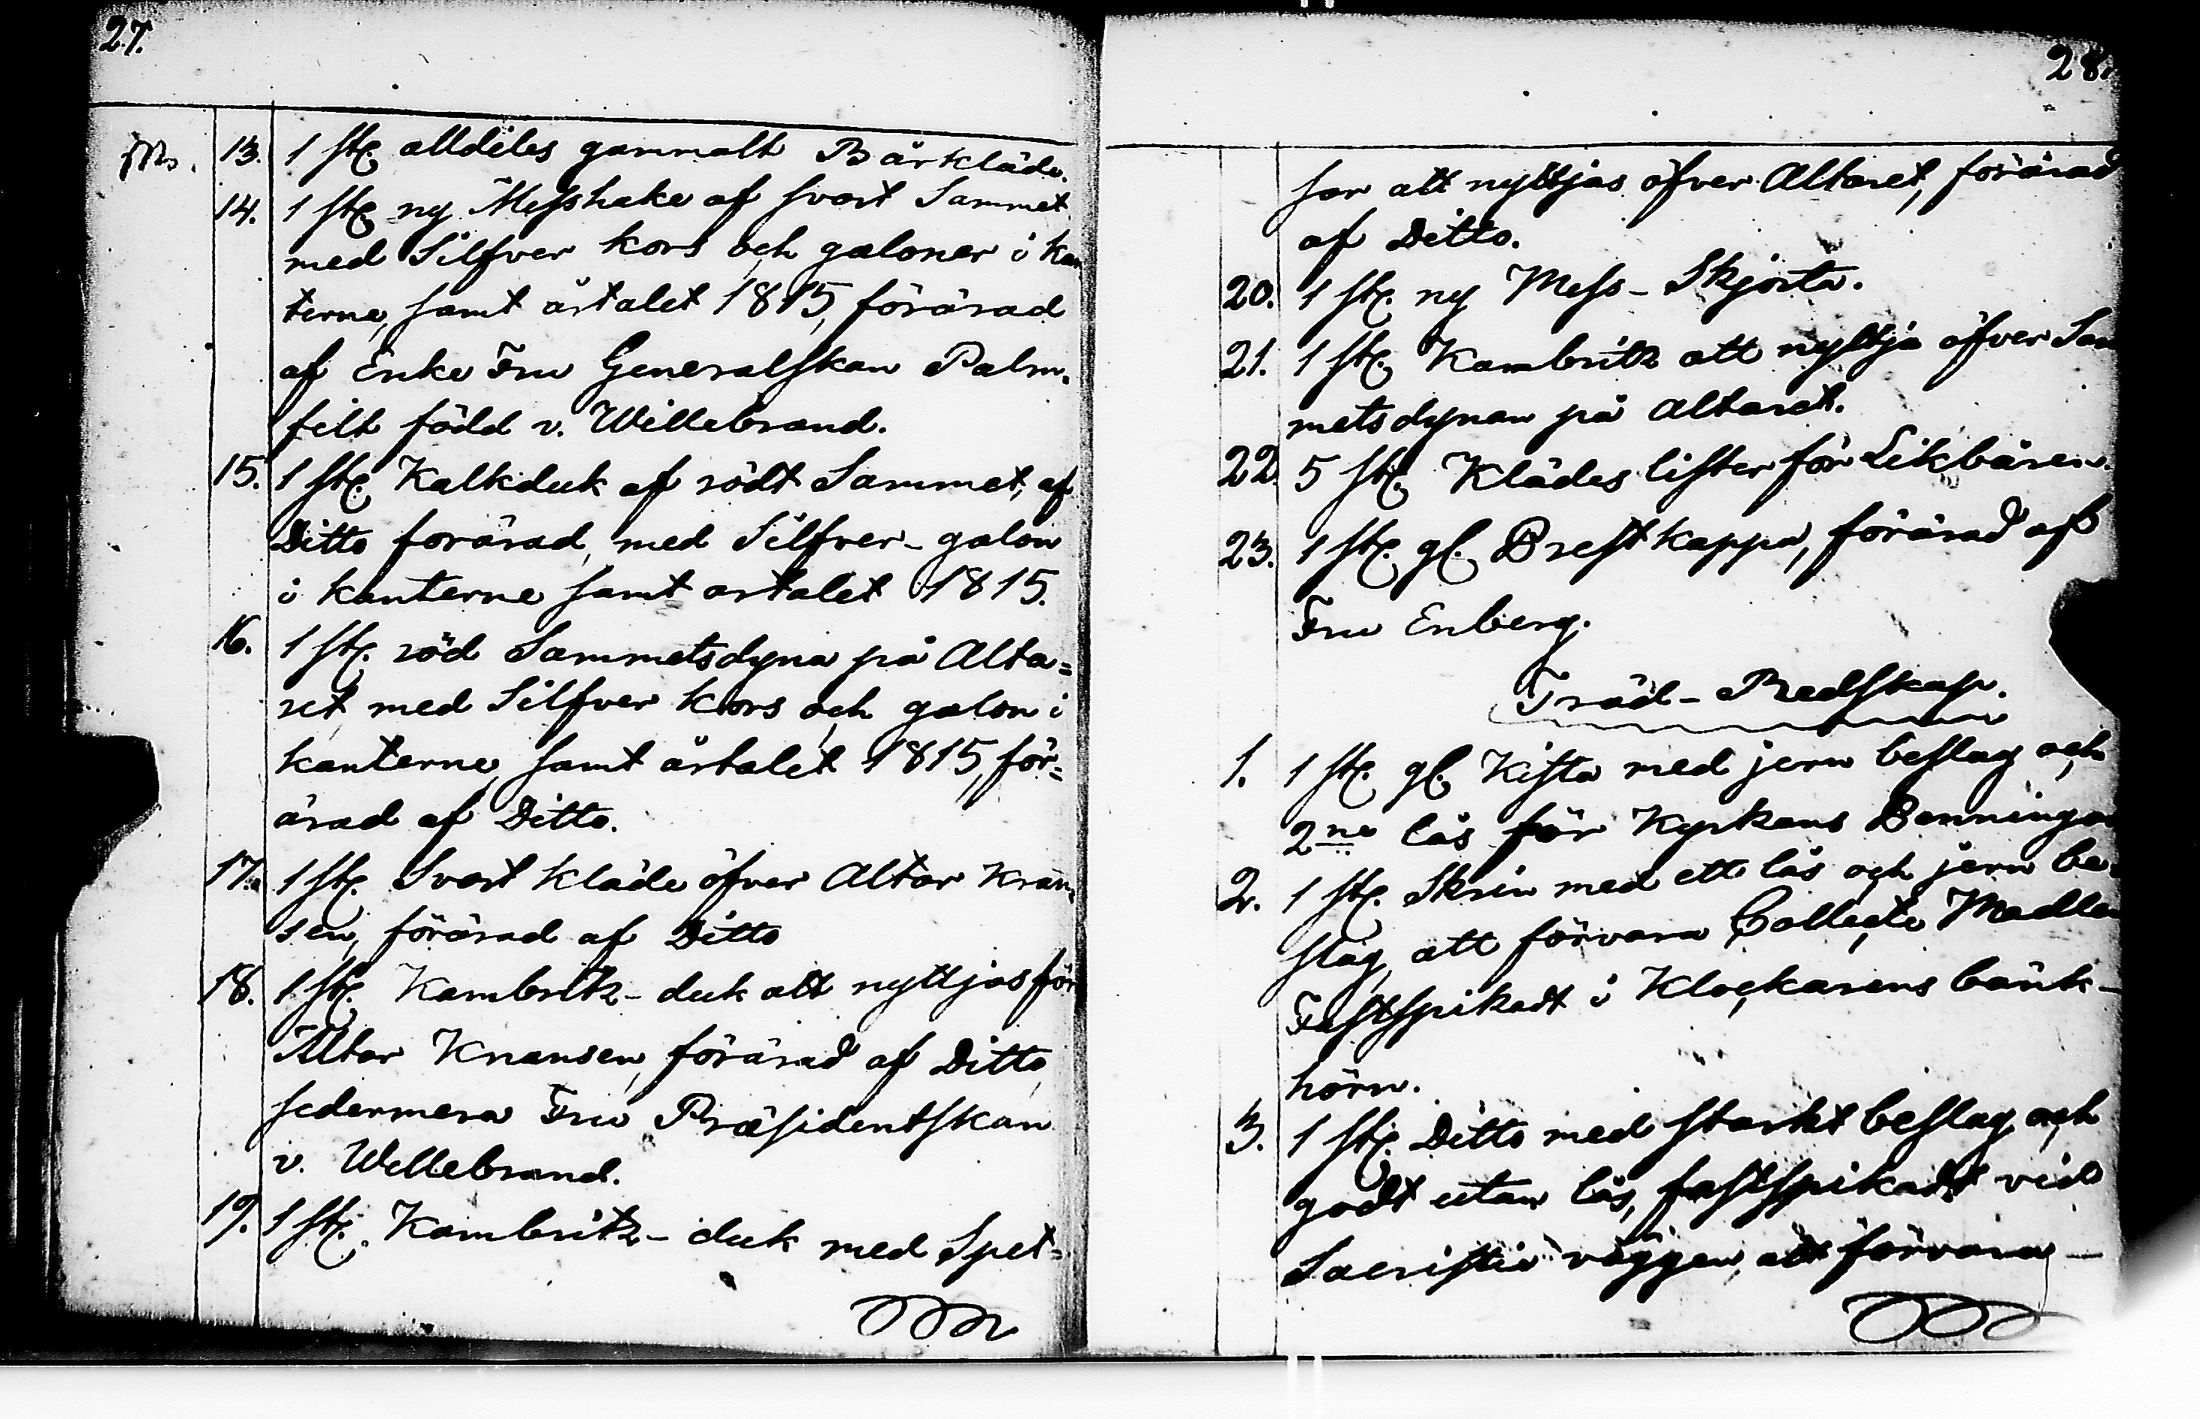 27.
13. 1 st. alldeles gammalt Bårkläde.
14. 1 st. ny Messhake af svart Sammet
med Silfver kors och galoner i kan
terne, samt årtalet 1815, förärad
af Enke Fru Generalskan Palm-
felt född v. Willebrand.
15. 1 st. Kalkduk af rödt Sammet, af
Ditto forärad, med Silfver-galon
i kanterne samt artalet 1815.
16. 1 st. röd Sammetsdyna på Alta=
ret, med Silfver kors och galon i
kanterne, samt årtalet 1815, för=
ärad af Ditto.
17. 1 st. Svart kläde öfver Altar Kran
sen, förärad af Ditto
18. 1 st. Kambritz-duk att nyttjas för
Altar Kransen, förärad af Ditto,
sedermera Fru Præsidentskan
v. Willebrand.
19. 1 st. Kambritz-duk med Spet=
28.
sar att nyttjas öfver Altaret, förärad
af Ditto.
20. 1 st. ny Mess-Skjorta.
21. 1 st. Kambritz att nyttja öfver Sam
metsdynan på altaret.
22. 5 st. Klädes lister för Likbåren.
23. 1 st. gl. Prestkappa, förärad af
Fru Enberg.
Träd-Redskap.
1. 1 st. gl. Kista med jern beslag och
2ne lås för Kyrkans Penningar
2. 1 st. Skrin med ett lås och jern be-
slag, att förvara Collecte Medlen
Fastspikadt i Klockarens bänk-
hörn.
3. 1 st. Ditto med starkt beslag och
godt utan lås, fastspikadt vid
Sacristie väggen, att förvara